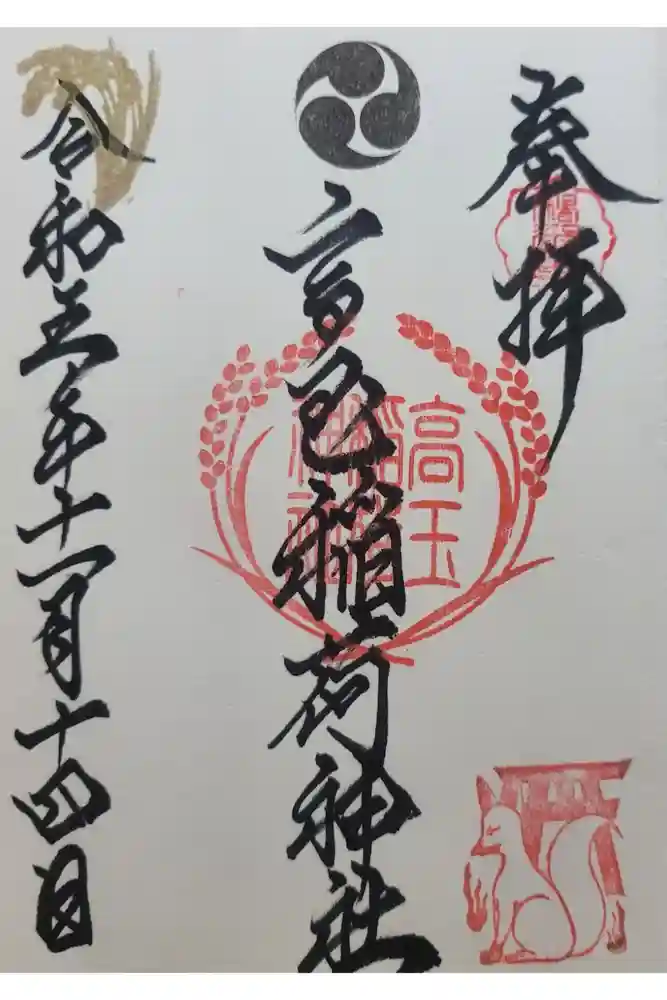 奉拝
高玉稲荷神社
高玉
稲荷
神社
令和五年十一月十四日